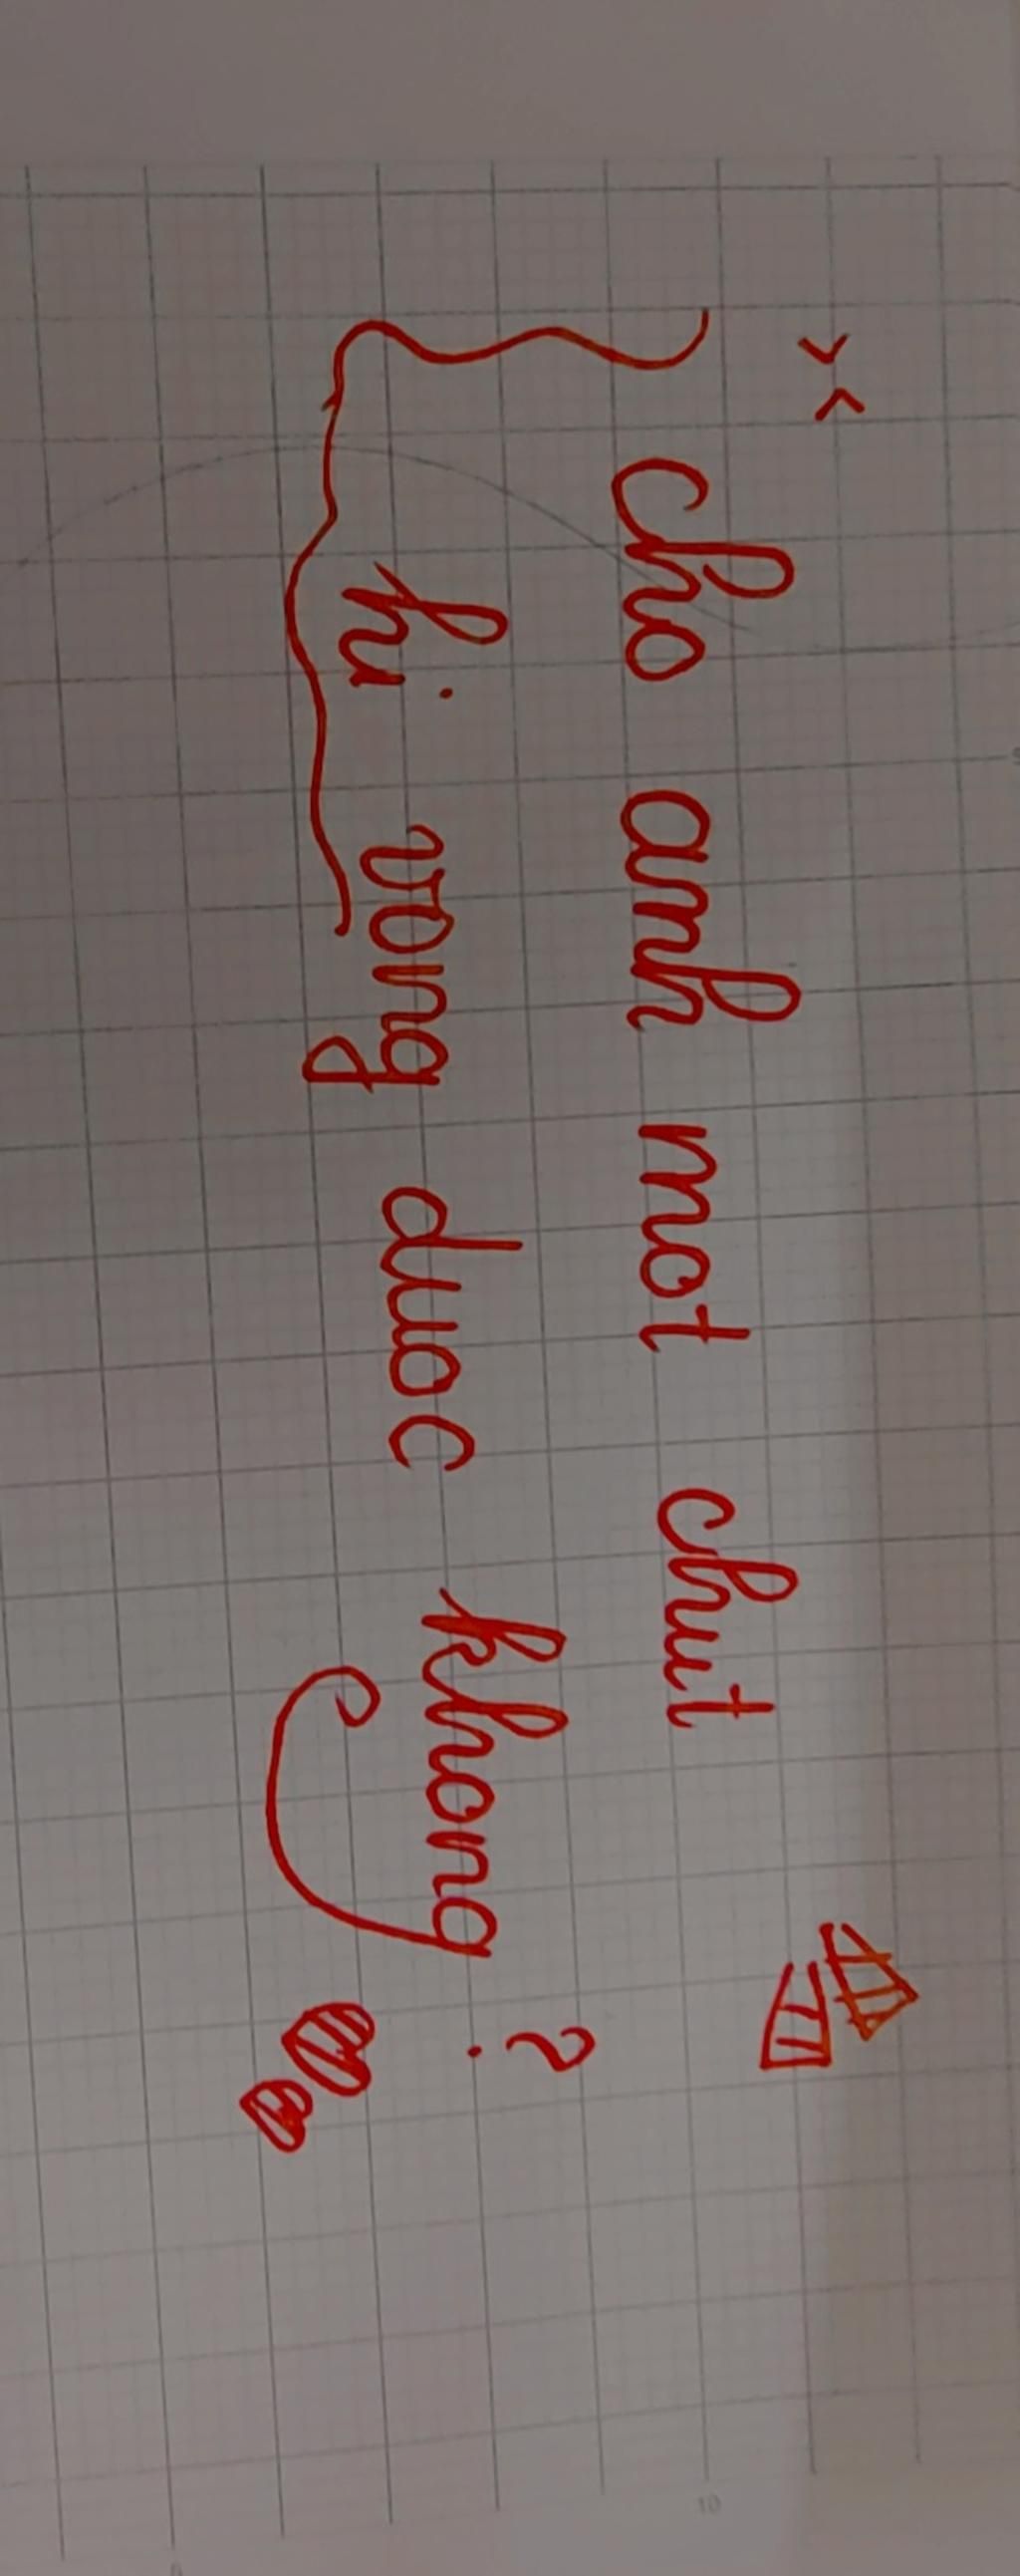 cho anh mot chut
hi vong duoc khong ?
10